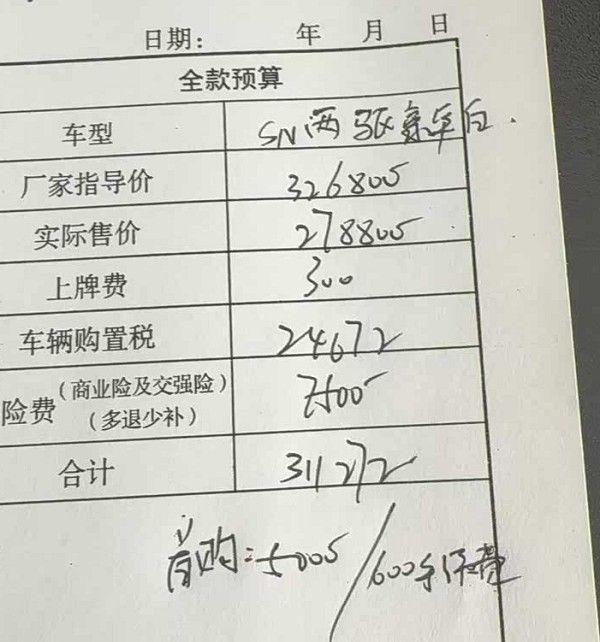 日期: 年 月 日
全款预算
车型 SN两驱豪华白.
厂家指导价 326800
实际售价 278800
上牌费 300
车辆购置税 24672
险费 (商业险及交强险) 7500
(多退少补)
合计 311272
首购:5000/600